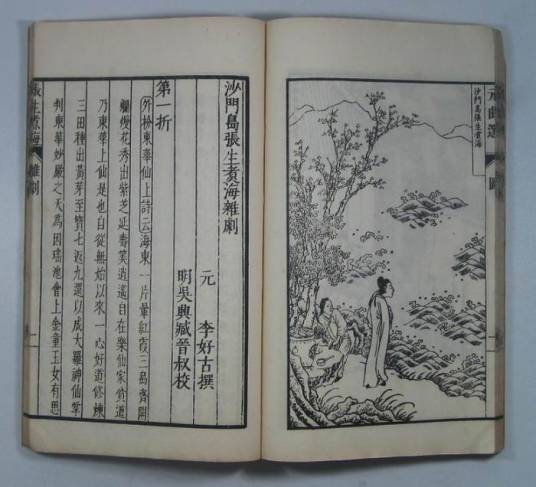 元曲選 圖
沙門島張生煑海
沙門島張生煑海雜劇
元 李好古撰
明吳興臧晉叔校
第一折
外扮東華仙上詩云海東一片暈紅霞三島齊開
爛熳花秀出紫芝延壽算逍遙自在樂仙家貧道
乃東華上仙是也自從無始以來一心好道修煉
三田種出黃芽至寶七返九還以成大羅神仙掌
判東華妙嚴之天爲因瑤池會上金童玉女有思
張生煑海 雜劇 一